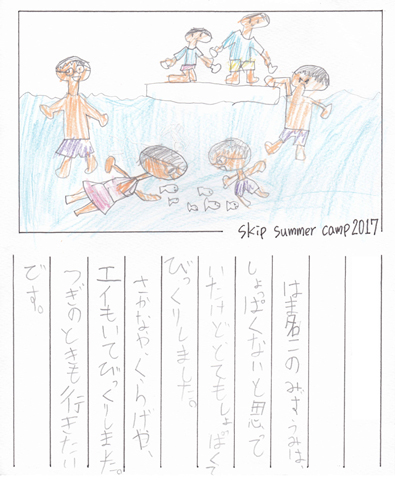 skip summer camp 2017
はま名このみずうみは、
しょっぱくないと思て
いたけどとてもしょぱくて
びっくりしました。
さかなや、くらげや、
エイもいてびっくりしました。
つぎのときも行きたい
です。